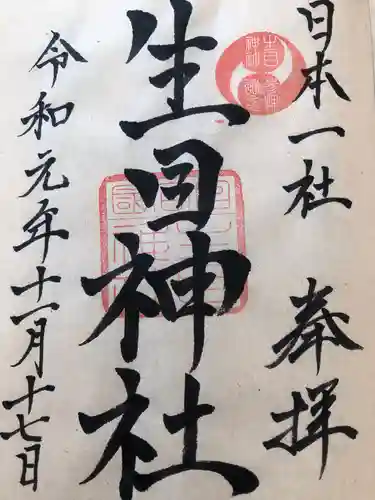 日本一社　奉拝
生目神社
令和元年十一月十七日